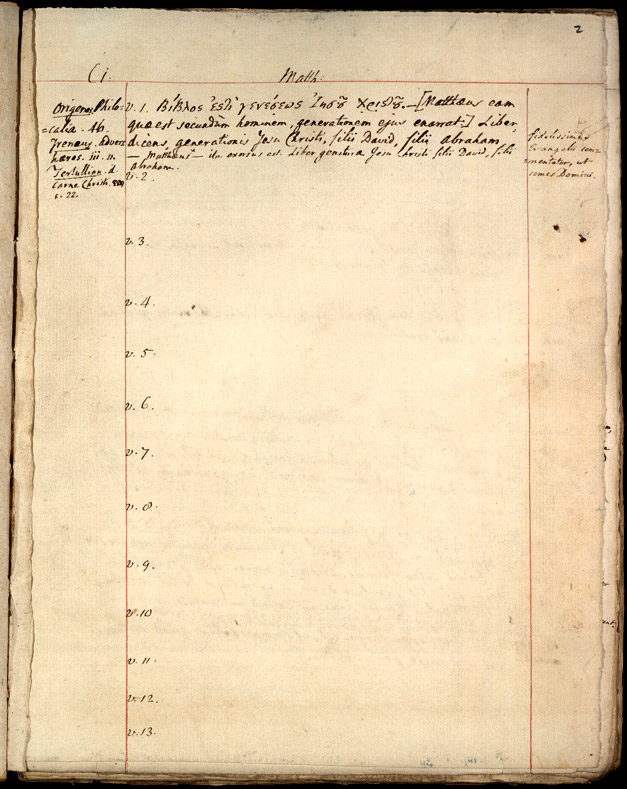 2
C i.
Matth:
Origenes, Philo=
=calia. 46.
Irenæus. Advers
hæres. iii. 11.
Tertullian. d.
Carne Christi.
c. 22.
v. 1. Βίβλος ἐστὶ γενέσεως Ἰησȣ͂ Χριστȣ͂.—[Matthæus eam
quæ est secundum hominem, generationem ejus enarrat:] Liber,
dicens, generationis Jesu Christi, filii David, filii Abraham
— Matthæus — ita exorsus est. Liber genituræ Jesu Christi filii David, filii
Abraham.
fidelissimus
Evangelii com=
mentator, ut
comes Domini.
v. 2
v. 3.
v. 4.
v. 5.
v. 6.
v. 7.
v. 8.
v. 9.
v. 10
v. 11.
v. 12.
v. 13.